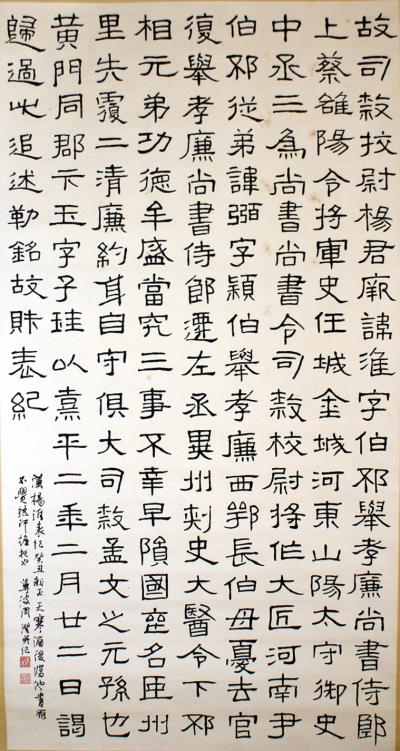 故司隸挍尉楊君厥諱淮字伯邳舉孝廉尚書侍郎
上蔡雒陽令將軍史任城金城河東山陽太守御史
中丞三為尚書尚書令司隸校尉將作大匠河南尹
伯邳從弟諱弼字穎伯舉孝廉西鄂長伯母憂去官
復舉孝廉尚書侍郎遷左丞冀州刺史大醫令下邳
相元弟功德牟盛當究三事不幸早隕國喪名臣州
里失覆二清廉約身自守俱大司隸孟文之元孫也
黃門同郡卞玉字子珪以熹平二年二月廿二日謁
歸過此追述勒銘故財表紀
漢楊淮表記癸丑新正天寒酒後